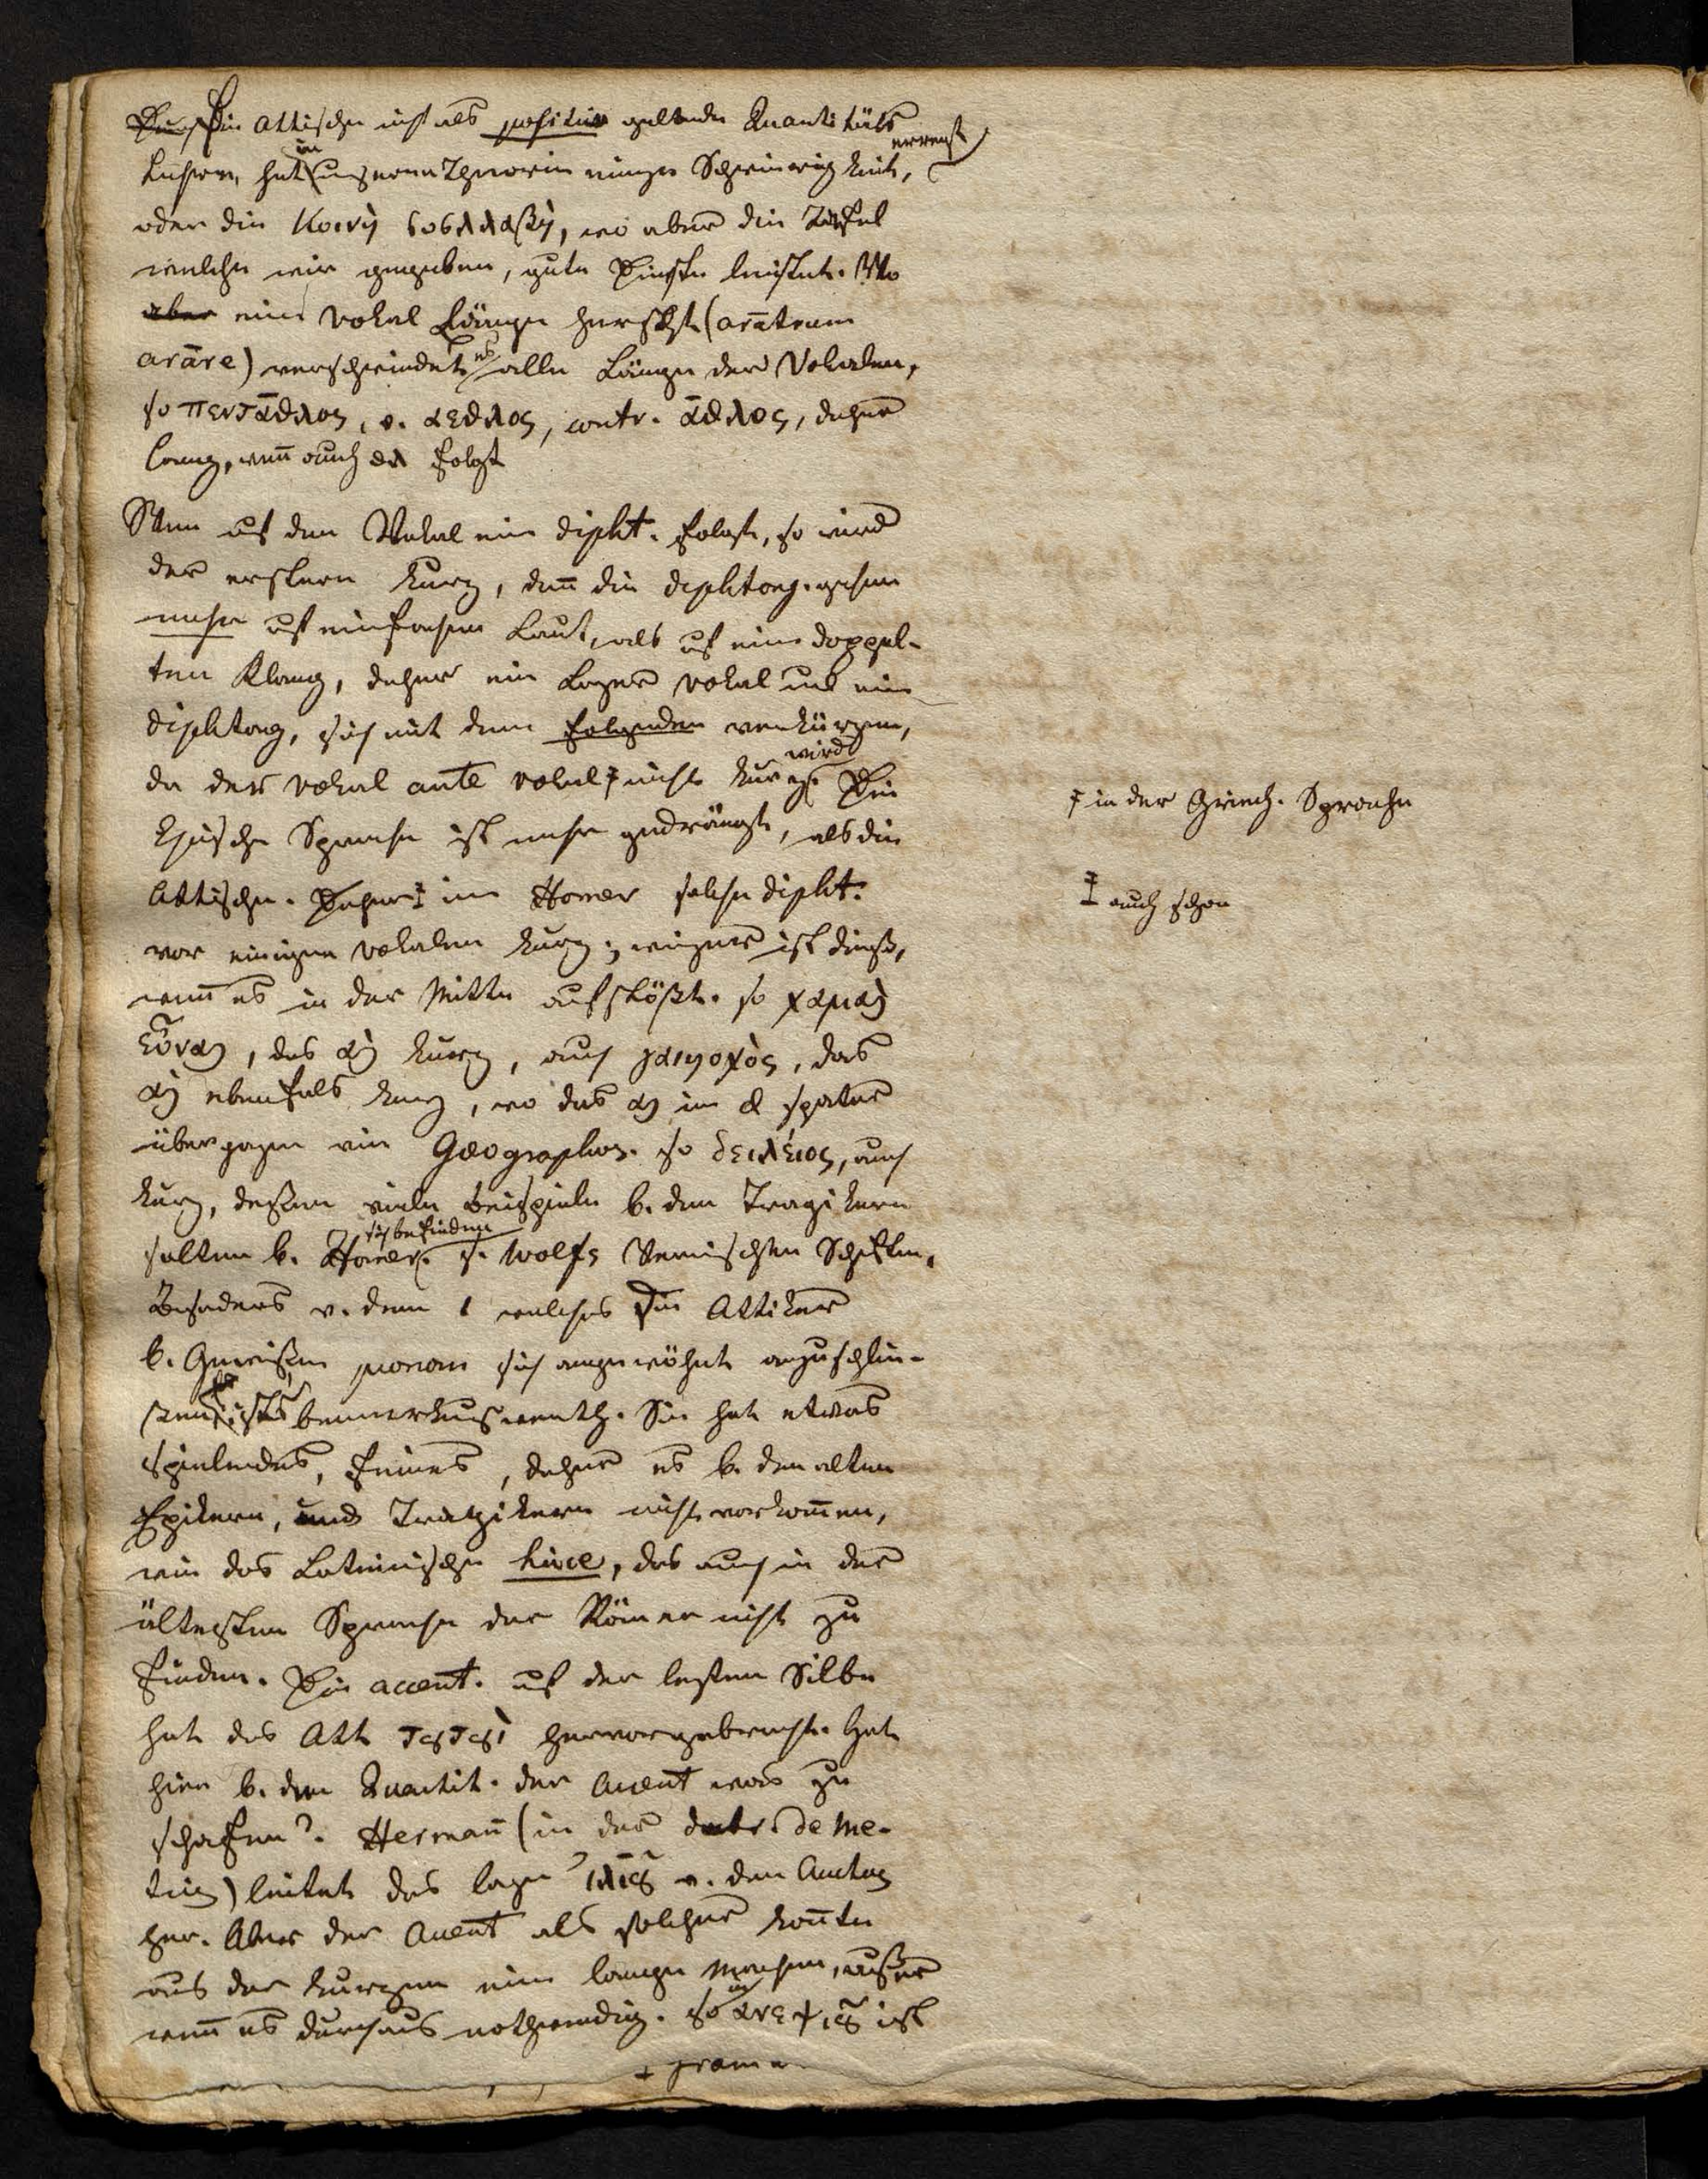 Die Attische nicht als positive geltende Quantitäts
Lehre, hat in unsern Theorien einige Schwierigkeit, erregt
oder die κοινὴ συλλαβὴ, wo aber die Tafel
welche wir gegeben, gute Dienste leistet. Wo
aber eine Vokal Länge herscht (arātrum
arāre) verschwindet es alle Länge der Vokalen,
so πεντᾱθλος, v. αεθλος, contr. ᾱθλος, daher
lang, weñ auch θλ folgt
Wenn auf den Vokal ein dipht. folgt, so wird
der erstere kurz, deñ die diphtong. gehen
mehr auf einfachen Laut, als auf eine doppel-
ten Klang, daher ein langer Vokal und ein
diphtong, sich mit dem folgenden verkürzen,
da der vokal ante vokal ‡ nicht kurz wird Die
‡ in der Griech. Sprache
Epische Sprache ist mehr gedrängt, als die
Attische. Daher ‡ im Homer solche dipht.
‡ auch schon
vor einigen vokalen kurz; weniger ist dieß,
weñ es in der Mitte aufstößt. so χαμαὶ
εὖναι, das αι kurz, auch γαιηοχὸς, das
αι ebenfals kurz, wo das αι im α später
übergegangen wie Geographos. so δειλέιος, auch
kurz, deßen viele Beispiele b. den Tragikern
selten b. Homer. sich befinden s. Wolfs Vermischten Schriften.
Besonders v. dem ι welches die Attiker
b. Gewißen pronom sich angewöhnt anzuschlin-
gen, ist bemerkenswerth. Sie hat etwas
spielendes, feines, daher es b. den alten
Epikern, und Tragikern nicht vorkom̄en,
wie das Lateinische hicce, das auch in der
ältesten Sprache der Römer nicht zu
finden. Die accent. auf der lezten Silbe
hat das Att hervorgebracht. Hat
hier b. der Quantit. der Accent was zu
schaffen? Hermañ (in der de me-
tris) leitet das lange v. dem
her. Aber der Accent als solcher koñte
aus der kurzen eine lange machen, außer
weñ es durchaus nothwendig. So ist